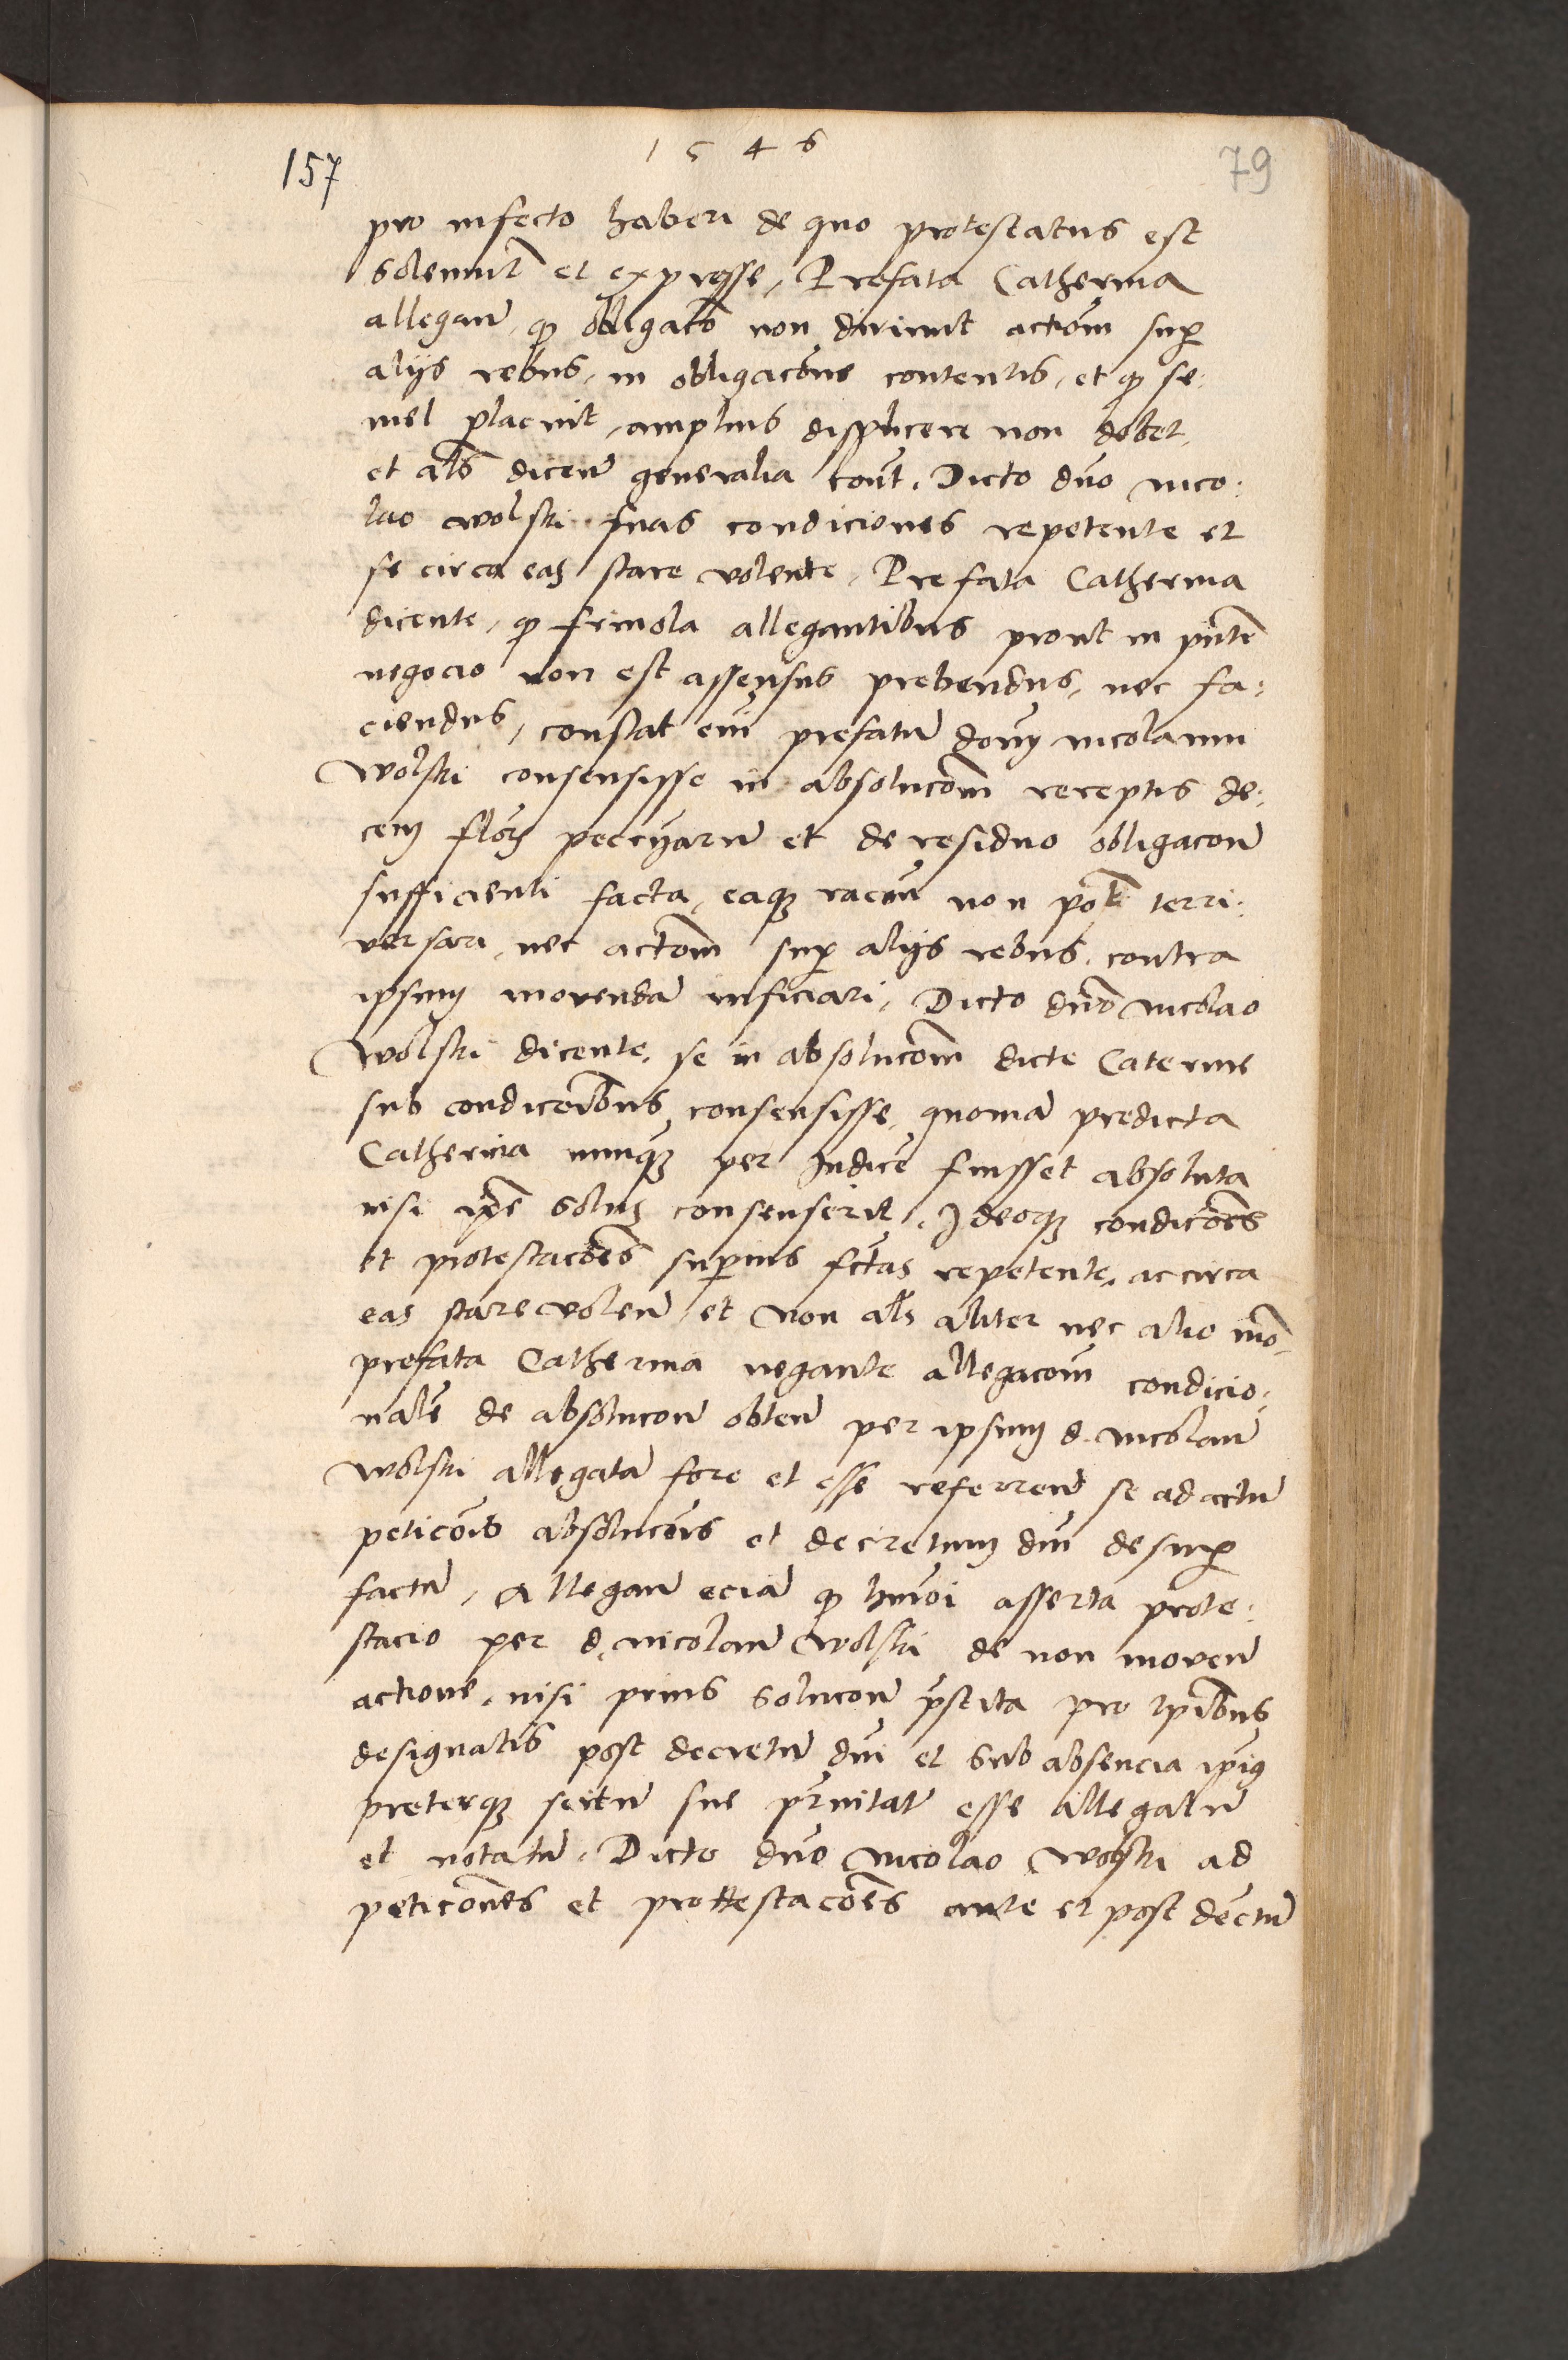 1546
157
79
pro infecto haberi de quo protestatus est
solennit̃ et expresse, Prefata Catherina
allegan̄ q̃ obligaco̅ non dirimit actom̅ sup̱
alijs rebus, in obligacōne contentis, et q̃ se:
mel placuit, amplius displicere non debet,
et als̄ dicen̄ generalia cont̄. Dicto dn̄o Nico:
lao Wolski suas condiciones repetente et
se circa eas stare volente, Prefata Catherina
dicente, q̃ frivola allegantibus prout in pn̄te
negocio non est assensus prebendus, nec fa:
ciendus, constat em̄ prefatū dom̄ Nicolaum
Wolski consensisse in absolucōm̄ receptis de:
cem flor̄ peccuarū et de residuo obligacōn̄
sufficienti facta, eaq̃ racōn̄ non pot̄ terri:
versari, nec actom̄ sup̱ alijs rebus, contra
ipsum movendā inficiari, Dicto dn̄o Nicolao
Wolski dicente, se in absolucōm̄ dicte Caterine
sub condicōibus consensisse, quoniā predicta
Catherina nunq̃ per Iudicē fuisset absoluta
nisi ip̄e solus consenserit, Ideoq̃ condicōes
et protestacōes superius fctas repetente, ac circa
eas stare volen̄, et non als̄ aliter nec alio mō
prefata Catherina negante allegacōm̄ condicio:
nalē de absolucōn̄ obten̄ per ipsum d. Nicolaū
Wolski allegatā fore et esse referren̄ se ad actū
peticōis absolucōis et decretum dn̄i desup̱
factū, Allegan̄ eciā q̃ hm̄oi asserta prote:
stacio per d. Nicolaū Wolski de non moven̄
actione, nisi prius solucōn̄ p̄stita pro
designatis post decretū dn̄i et sub absencia ip̄ius
preterq̃ scitū sue esse allegatū
et notatū. Dicto dn̄o Nicolao Wolski ad
peticōnes et prottestacōes ante et post dectū